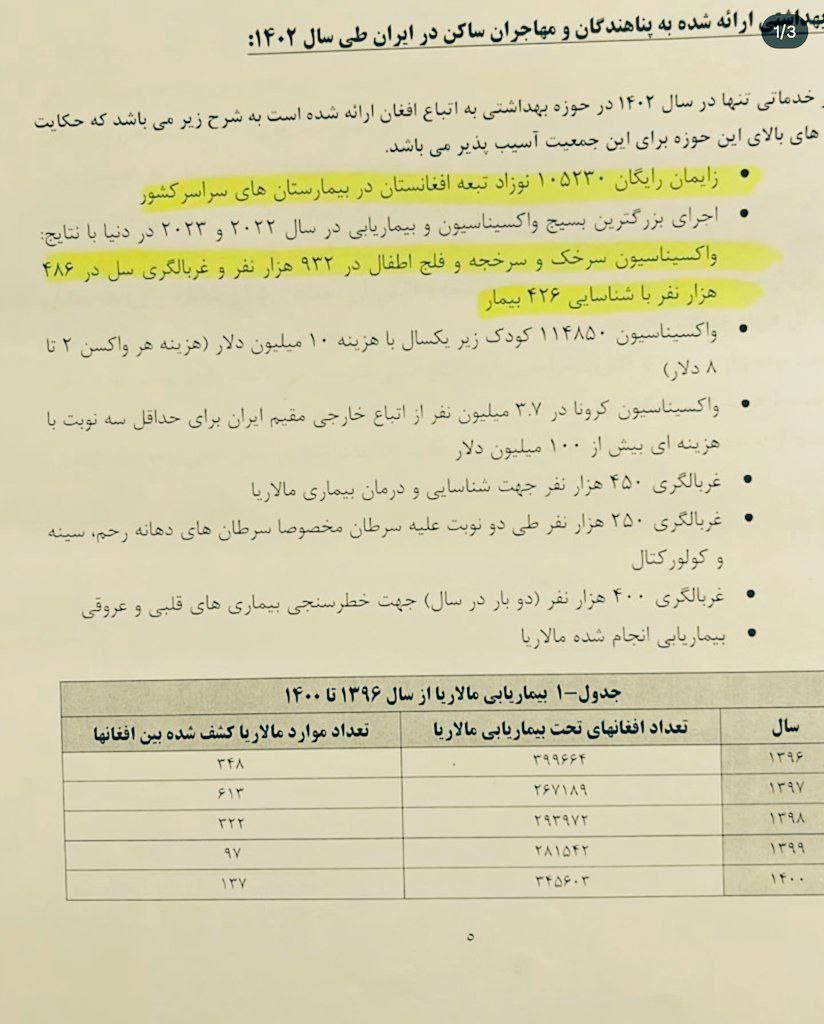 بهداشتی ارائه شده به پناهندگان و مهاجران ساکن در ایران طی سال ۱۴۰۲:
1/3
خدماتی تنها در سال ۱۴۰۲ در حوزه بهداشتی به اتباع افغان ارائه شده است به شرح زیر می باشد که حکایت
های بالای این حوزه برای این جمعیت آسیب پذیر می باشد.
• زایمان رایگان ۱۰۵۲۳۰ نوزاد تبعه افغانستان در بیمارستان های سراسر کشور
• اجرای بزرگترین بسیج واکسیناسیون و بیماریابی در سال ۲۰۲۲ و ۲۰۲۳ در دنیا با نتایج:
واکسیناسیون سرخک و سرخجه و فلج اطفال در ۹۳۲ هزار نفر و غربالگری سل در ۴۸۶
هزار نفر با شناسایی ۴۲۶ بیمار
• واکسیناسیون ۱۱۴۸۵۰ کودک زیر یکسال با هزینه ۱۰ میلیون دلار (هزینه هر واکسن ۲ تا
۸ دلار)
• واکسیناسیون کرونا در ۳.۷ میلیون نفر از اتباع خارجی مقیم ایران برای حداقل سه نوبت با
هزینه ای بیش از ۱۰۰ میلیون دلار
• غربالگری ۴۵۰ هزار نفر جهت شناسایی و درمان بیماری مالاریا
• غربالگری ۲۵۰ هزار نفر طی دو نوبت علیه سرطان مخصوصا سرطان های دهانه رحم، سینه
و کولورکتال
• غربالگری ۴۰۰ هزار نفر (دو بار در سال) جهت خطرسنجی بیماری های قلبی و عروقی
• بیماریابی انجام شده مالاریا
جدول-۱ بیماریابی مالاریا از سال ۱۳۹۶ تا ۱۴۰۰
سال تعداد افغانهای تحت بیماریابی مالاریا تعداد موارد مالاریا کشف شده بین افغانها
۱۳۹۶ ۳۹۹۶۶۴ ۳۴۸
۱۳۹۷ ۲۶۷۱۸۹ ۶۱۳
۱۳۹۸ ۲۹۳۹۷۲ ۳۲۲
۱۳۹۹ ۲۸۱۵۴۲ ۹۷
۱۴۰۰ ۳۴۵۶۰۳ ۱۳۷
۵